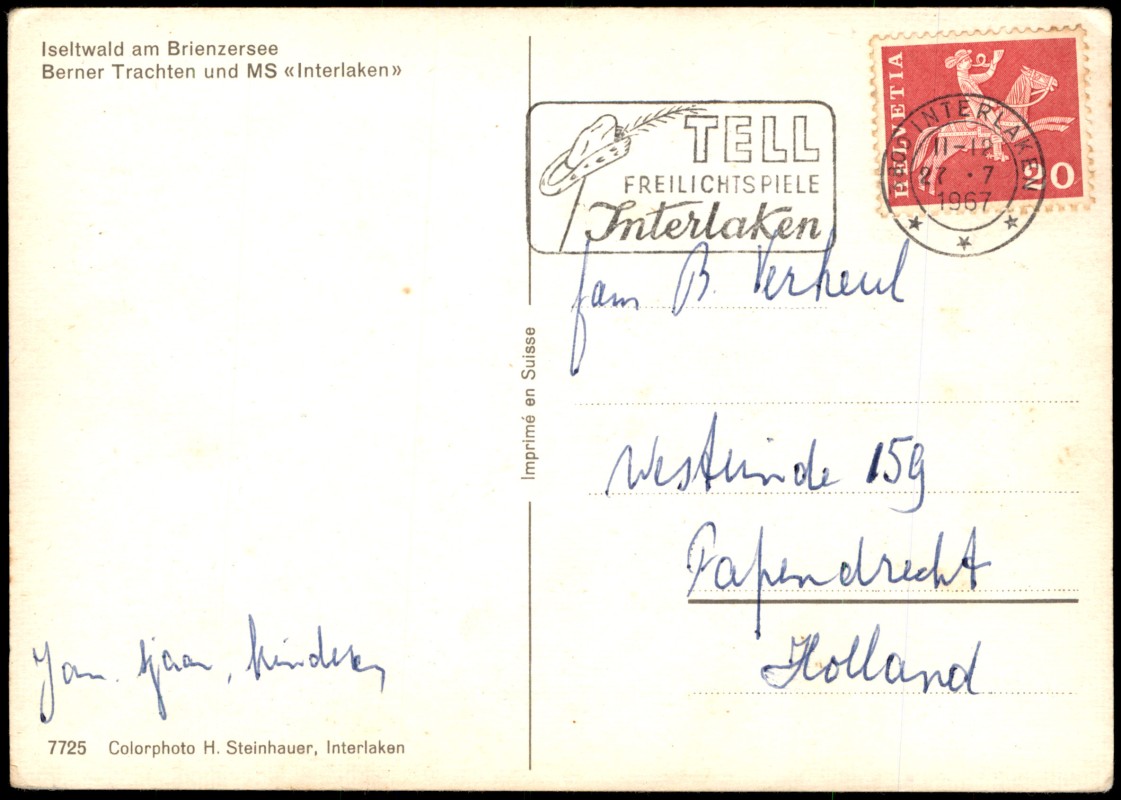 Iseltwald am Brienzersee
Berner Trachten und MS «Interlaken»
TELL
FREILICHTSPIELE
Interlaken
HELVETIA
20
INTERLAKEN
11-12
27 · 7
1967
fam B. Verheul
Westeinde 159
Papendrecht
Holland
Imprimé en Suisse
Jan. Sjaan, kinderen
7725 Colorphoto H. Steinhauer, Interlaken